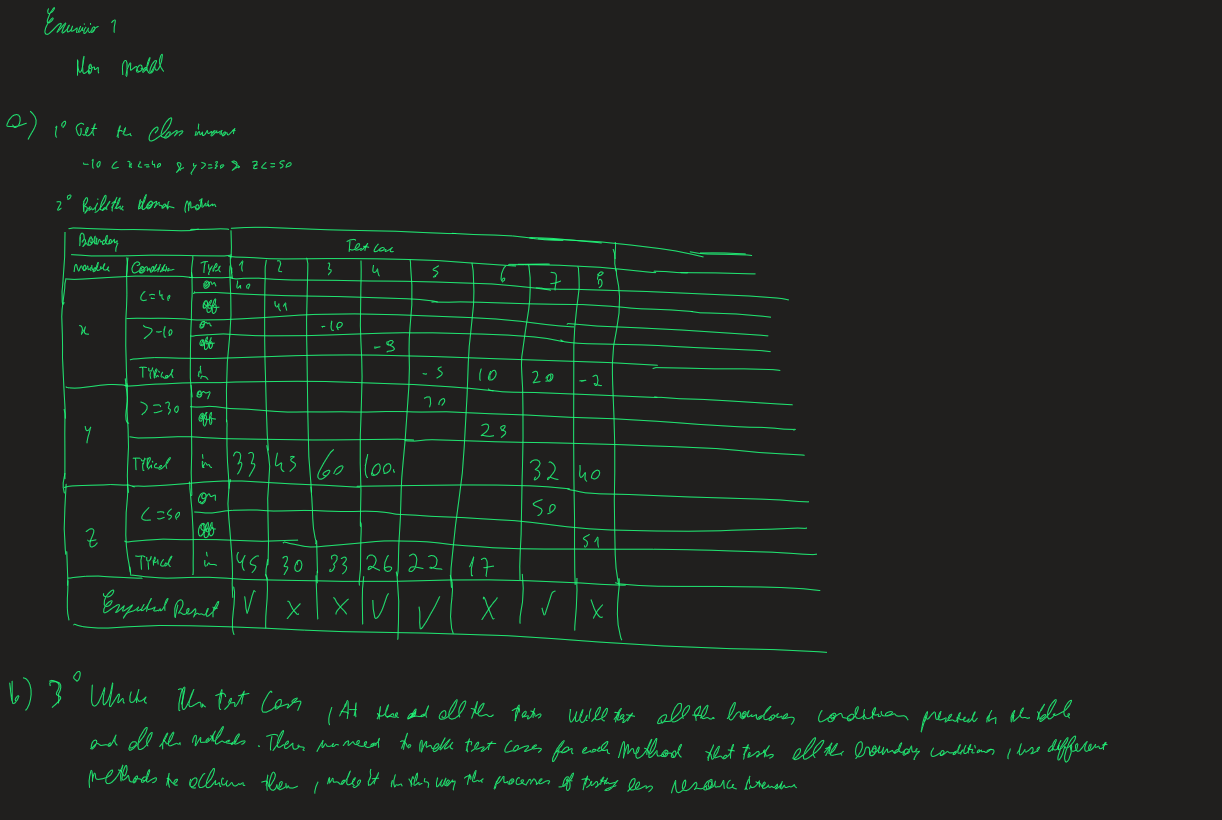 Exercício 1
Non Modal
a) 1° Get the class invariant
-10 < x <=40 & y >=30 & z <=50
2° Build the Domain Matrix
Boundary Test Case
Variable Condition Type 1 2 3 4 5 6 7 8
x <=40 on 40
off 41
>-10 on -10
off -9
Typical in -5 10 20 -2
y >=30 on 30
off 29
Typical in 33 45 60 100 32 40
z <=50 on 50
off 51
Typical in 45 30 33 26 22 17
Expected Result V X X V V X V X
b) 3° Write the test cases, At the end all the tests will test all the boundary conditions presented in the table
and all the methods. There no need to make test cases for each method that tests all the boundary conditions, use different
methods to achieve them, make it in this way the processes of testing less resource intensive